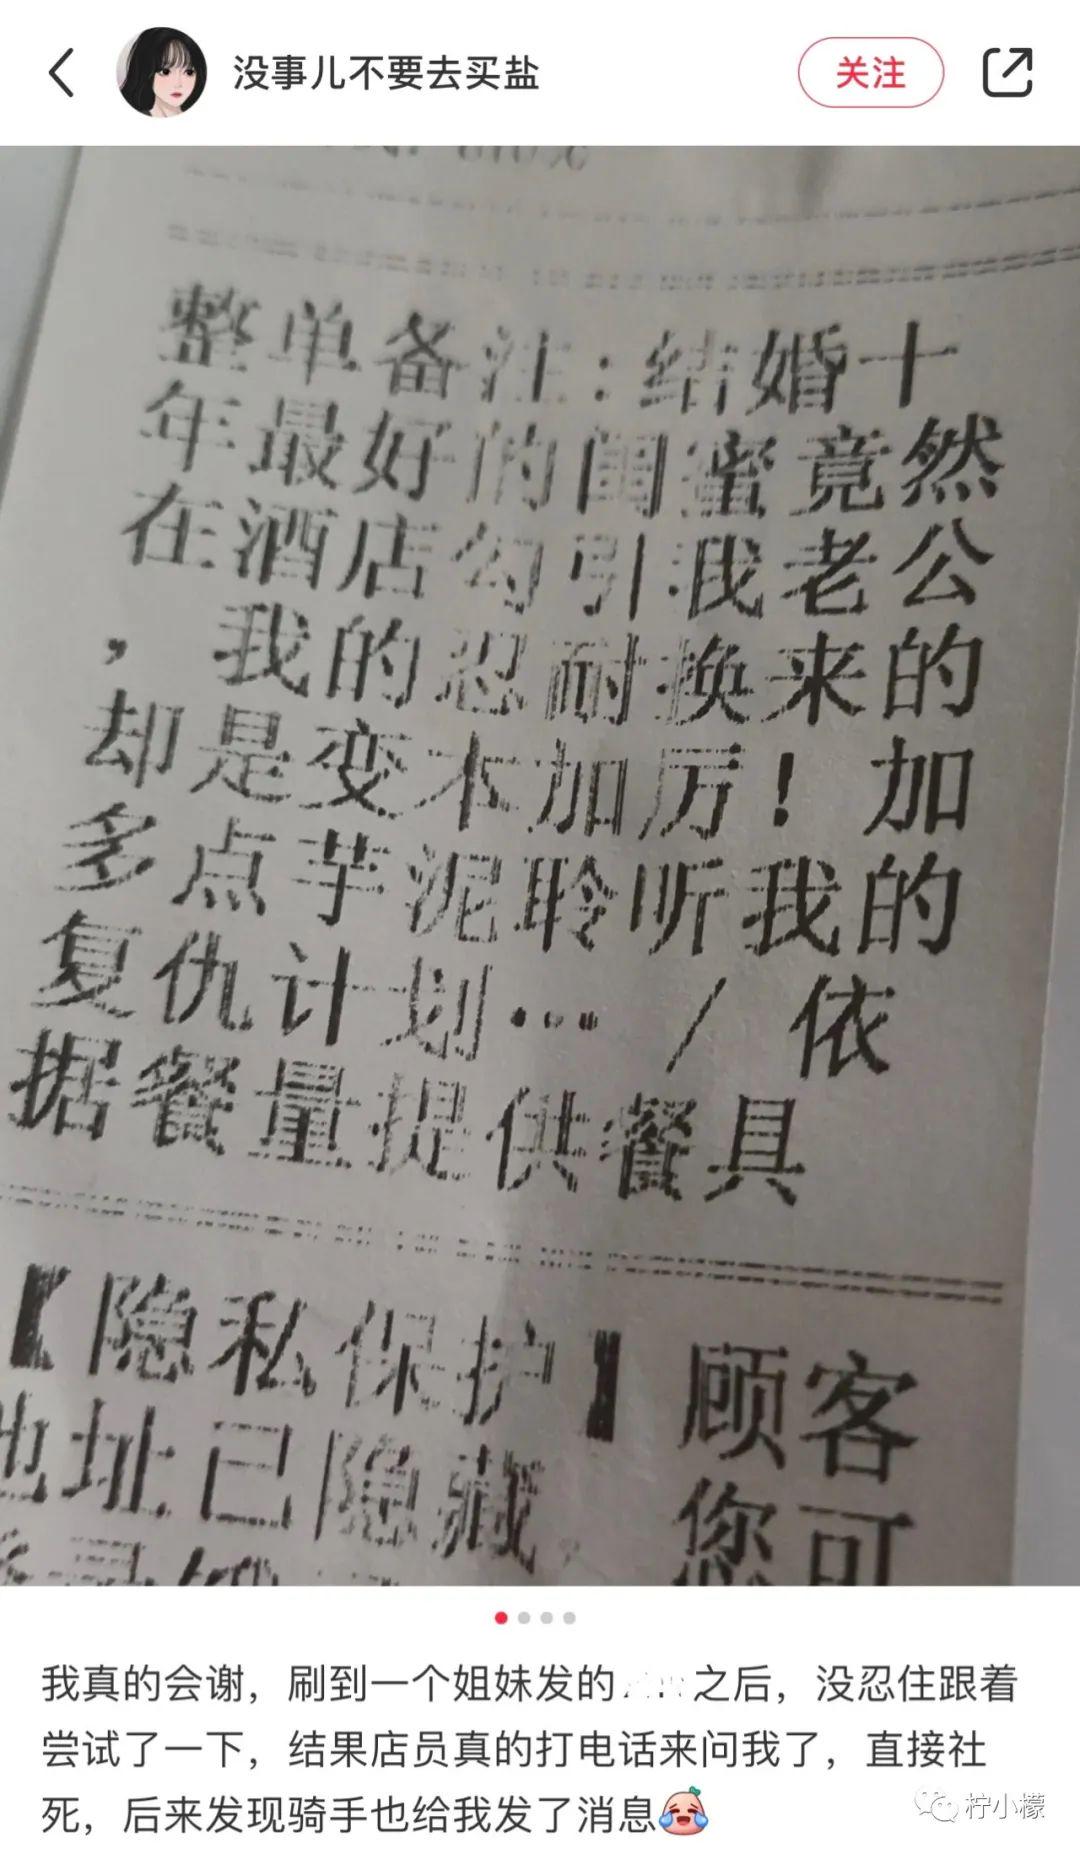 没事儿不要去买盐
关注
整单备注：结婚十
年最好的闺蜜竟然
在酒店勾引我老公
，我的忍耐换来的
却是变木加厉！加
多点芋泥聆听我的
复仇计划…/ 依
据餐量提供餐具
【隐私保护】顾客
地址已隐藏，您可
我真的会谢，刷到一个姐妹发的之后，没忍住跟着
尝试了一下，结果店员真的打电话来问我了，直接社
死，后来发现骑手也给我发了消息
柠小檬